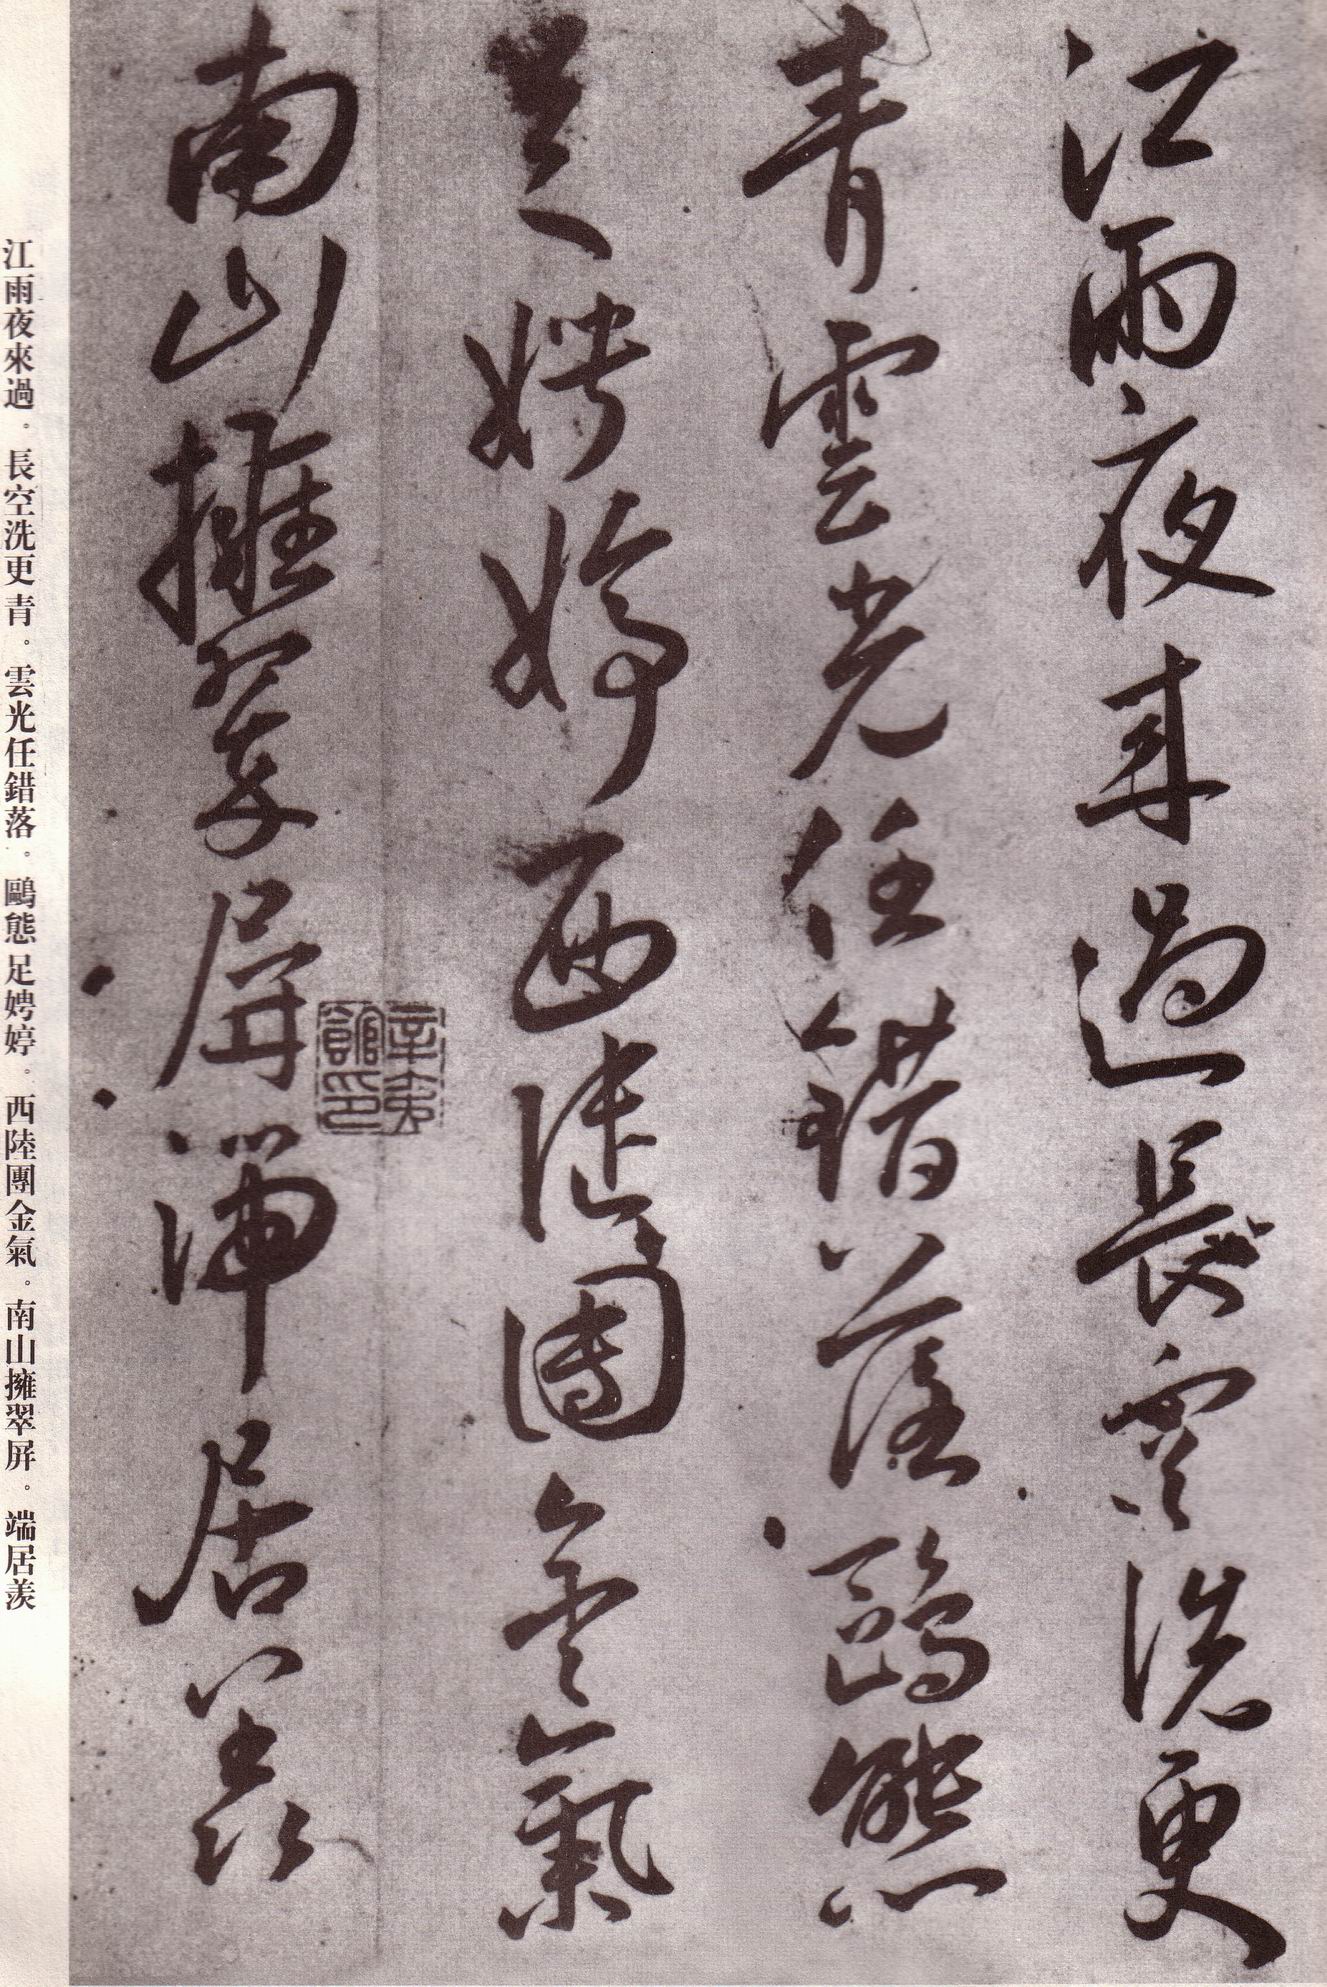 江雨夜来過長空洗更
青雲光任錯落鷗態
足娉婷西陸團金氣
南山擁翠屏端居羡
江雨夜來過。長空洗更青。雲光任錯落。鷗態足娉婷。西陸團金氣。南山擁翠屏。端居羨